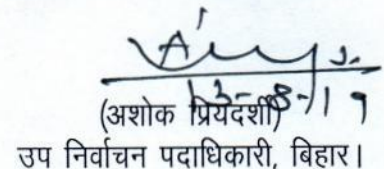 13-8-19
(अशोक प्रियदर्शी)
उप निर्वाचन पदाधिकारी, बिहार।